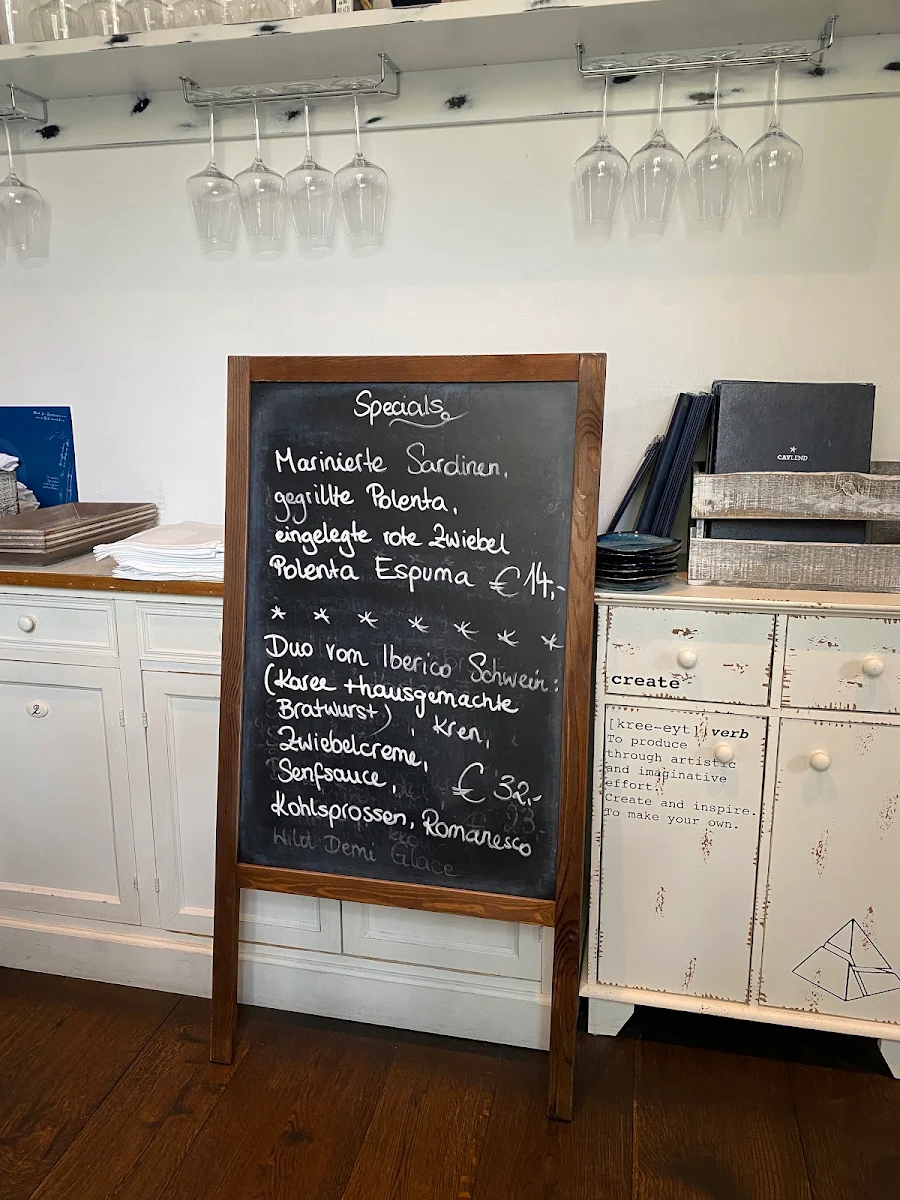 Specials
Marinierte Sardinen,
gegrillte Polenta,
eingelegte rote Zwiebel
Polenta Espuma €14,-
* * * * * * *
Duo vom Iberico Schwein:
(Karee +hausgemachte
Bratwurst), Kren,
Zwiebelcreme,
Senfsauce, € 32,-
Kohlsprossen, Romanesco
Wild Demi Glace
CAYLEND
2
create
[kree-eyt] verb
To produce
through artistic
and imaginative
effort.
Create and inspire.
To make your own.